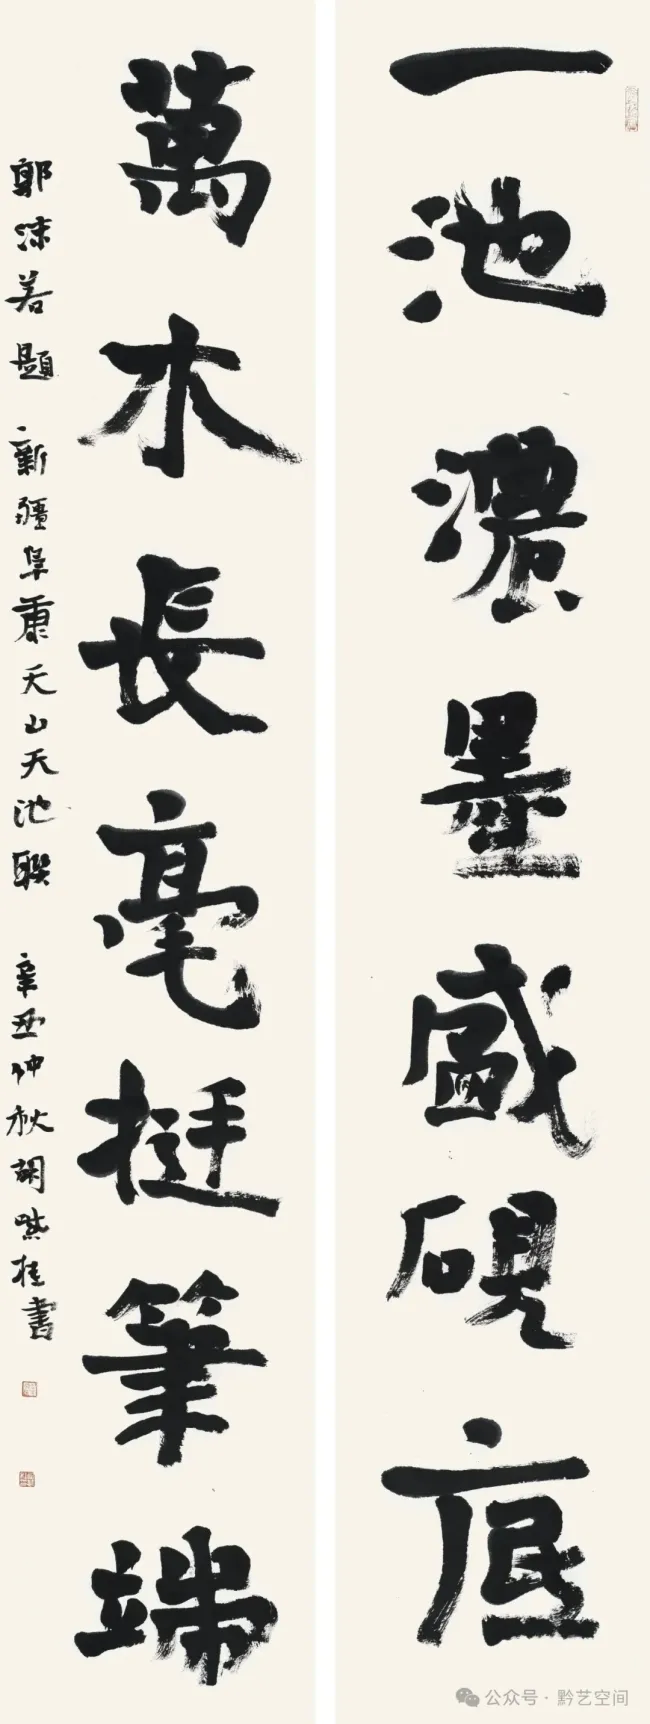 一池濃墨盛硯底
萬木長毫挺筆端
郭沫若題 新疆阜康天山天池聯 辛丑仲秋 桂書
公众号·黔艺空间